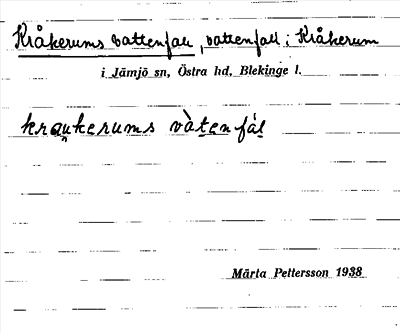 Kråkerums vattenfall, vattenfall i Kråkerum
i Jämjö sn, Östra hd, Blekinge l.
kraukerums vàtenfál
Märta Pettersson 1938